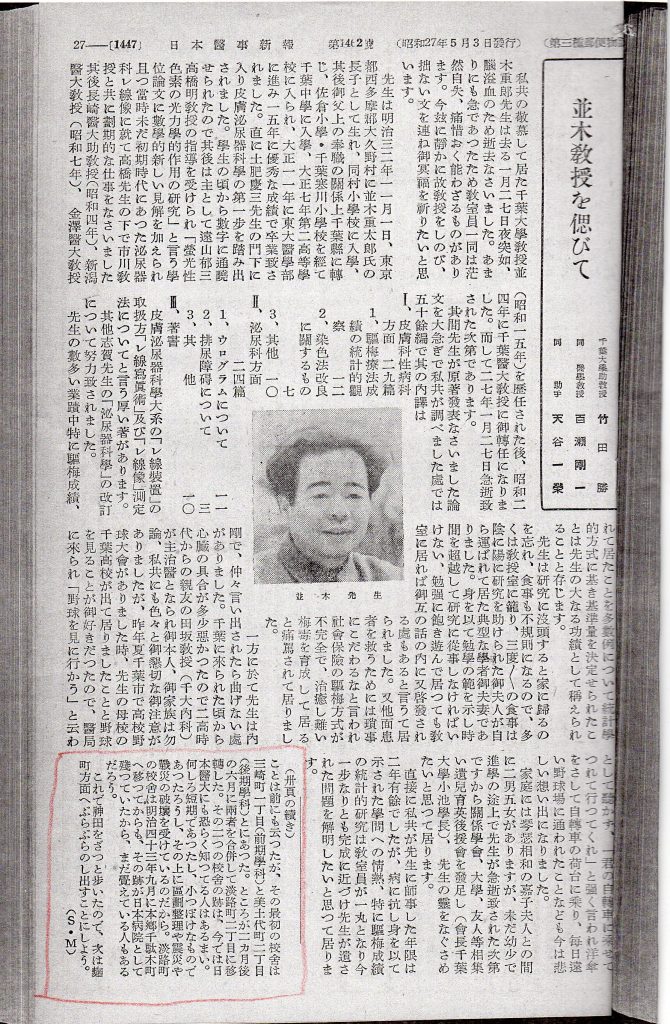 27——〔1447〕 日本醫事新報 第1462號 (昭和27年5月3日發行)
並木敎授を偲びて
千葉大學助敎授 竹田勝
同 醫學敎授 百瀬剛一
同 助手 天谷一榮
私共の敬慕して居た千葉大學敎授並
木重郎先生は去る一月二七日夜突如、
腦溢血のため逝去なさいました。あま
りにも急であつたため敎室員一同は茫
然自失、痛惜おく能わざるものがあり
ます。今茲に靜かに故敎授をしのび、
拙ない文を連ね御冥福を祈りたいと思
います。
先生は明治三二年一一月一日、東京
都西多摩郡大久野村に並木重太郎氏の
長子として生れ、同村小學校に入學、
其後御父上の奉職の關係上千葉縣に轉
じ、佐倉小學・千葉寒川小學校を經て
千葉中學に入學、大正七年第二高等學
校に入られ、大正一一年に東大醫學部
に進み一五年に優秀な成績で卒業致さ
れました。直に土肥慶三先生の門下に
入り皮膚泌尿器科學の第一歩を踏み出
されました。學生の頃から數字に通曉
せられたので其後は主として遠山郁三
高橋明敎授の指導を受けられ「螢光性
色素の光力學的作用の硏究」と言う學
位論文に數學的新しい見解を加えられ
且つ當時未だ初期時代にあつた泌尿器
科レ線像に就て高橋先生の下で市川敎
授と共に劃期的な仕事をなさいました
其後長崎醫大助敎授(昭和四年)、新潟
醫大敎授(昭和七年)、金澤醫大敎授
(昭和一五年)を歷任された後、昭和二
四年に千葉醫大敎授に御轉任になりま
した。而して二七年一月二七日急逝致
された次第であります。
其間先生が原著發表なさいました論
文を大急ぎで私共が調べました處では
五十餘編で其の內譯は
Ⅰ、皮膚科性病科
方面 二九篇
1、驅梅療法成
績の統計的觀
察 一二
2、染色法改良
に關するもの
七
3、其他 一〇
Ⅱ、泌尿科方面
二四篇
1、ウログラムについて 一一
2、排尿障碍について 三
3、其他 一〇
Ⅲ、著書
皮膚泌尿器科學大系の「レ線裝置」の
取扱方「レ線寫眞術」及び「レ線像」測定
法についてと言う厚い著があります。
其他志賀先生の「泌尿器科學」の改訂
について努力致されました。
先生の數多い業蹟中特に驅梅成績、
並木先生
れて居たことを多數例について統計學
的方式に基き基準量を決定せられたこ
とは先生の大なる功績として稱えられ
ることと存じます。
先生は硏究に沒頭すると家に歸るの
を忘れ、食事も不規則になるので、多
くは敎授室に籠り、三度／＼の食事は
陰に陽に硏究を助けられた御夫人が自
ら運ばれて居た典型な學者御夫妻であ
りました。身を以て勉學の範を示し時
間を超越して硏究に從事しなければい
けない、勉强に飽き遊んで居つても敎
室に居れば御互の話の內に又啓發され
る處もあると言うて居
られました。又他面患
者を救うためには瑣事
にこだわるなと言われ
社會保險の驅梅方式が
不完全で、治癒し難い
梅毒を育成して居る
と痛罵されて居りまし
た。
一方に於て先生は內
剛で、仲々言い出されたら曲げない處
がありました。千葉に來られた頃から
心臟の具合が多少惡かつたので二高時
代からの親友の田坂敎授(千大內科)
が主治醫となられ御本人、御家族は勿
論、私共にも色々と御懇切な御注意が
ありましたが、昨年夏千葉市で高校野
球大會がありました時、先生の母校の
千葉高校が出て居りましたことと野球
を見ることが御好きだつたので、醫局
に來られ「野球を見に行かう」と云わ
つれて行つてくれ」と强く言われ洋傘
をさして自轉車の荷台に乘り、毎日遠
い野球場に通われたことなども今は悲
しい想い出になりました。
家庭には琴瑟相和の嘉子夫人との間
に二男五女がありますが、未だ幼少で
進學の途上で先生が急逝された次第
ですから關係學會、大學、友人等相集
い遺兒育英後援會を發足し(會長千葉
大學小池學長)、先生の靈をなぐさめ
たいと思つて居ります。
直接に私共が先生に師事した年限は
二年有餘でしたが、病に抗し身を以て
示された學問への情熱、特に驅梅成績
の統計的硏究は敎室員が一丸となり今
一歩なりとも完成に近づけ先生が遺さ
れた問題を解明したいと思つて居りま
す。
(卅頁の續き)
ことは前にも云つたが、その最初の校舍は
三崎町一丁目(前期學科)と美土代町二丁目
(後期學科)とにあつた。ところが二カ月後
の六月に兩者を合併して淡路町二丁目に移
轉した。その二つの校舍の跡は、今では日
本醫大にも恐らく知つている人はあるまい。
何しろ短期であつたし、小つぽけなもので
あつたろうし、その上に區劃整理や震災や
戰災の破壞を受けているのだから。淡路町
の校舍は明治四十三年九月に本鄕千駄木町
へ移つてからも、その跡が日本病院として
殘つていたから、まだ覺えている人もある
だろう。
これで神田をざつと步いたので、次は麴
町方面へぶらぶらのし出すことにしよう。
(S・M)